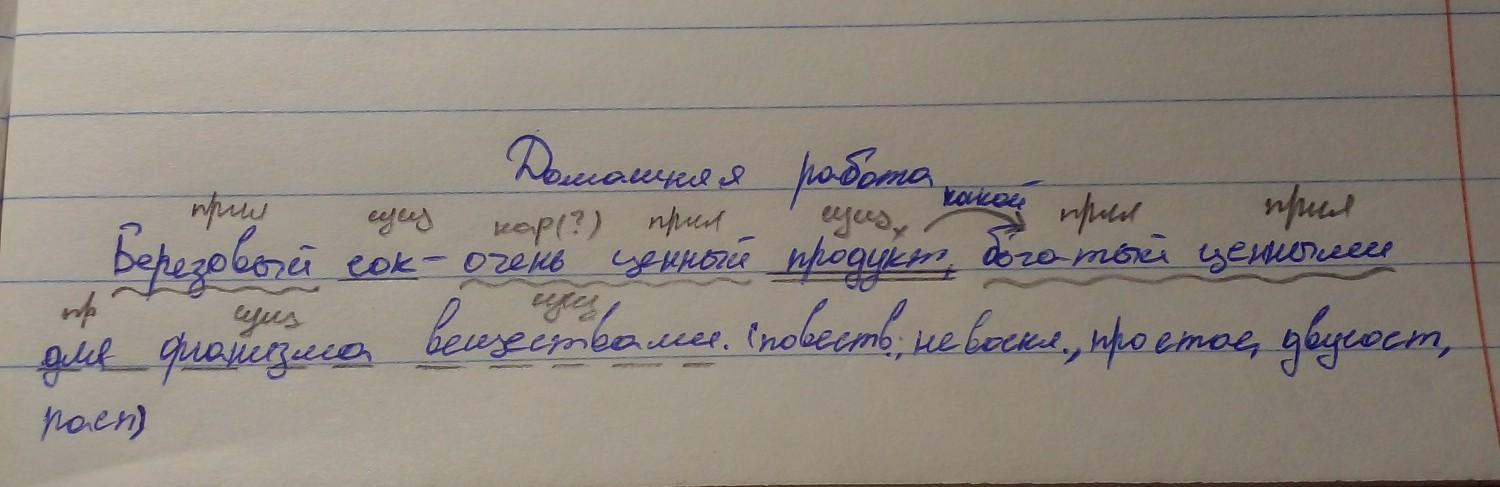 Домашняя работа
какой
прил сущ нар(?) прил сущ х прил прил
Березовый сок - очень ценный продукт, богатый ценными
пр сущ сущ
для физма веществами. (повеств., невоскл., простое, двусост,
расп)